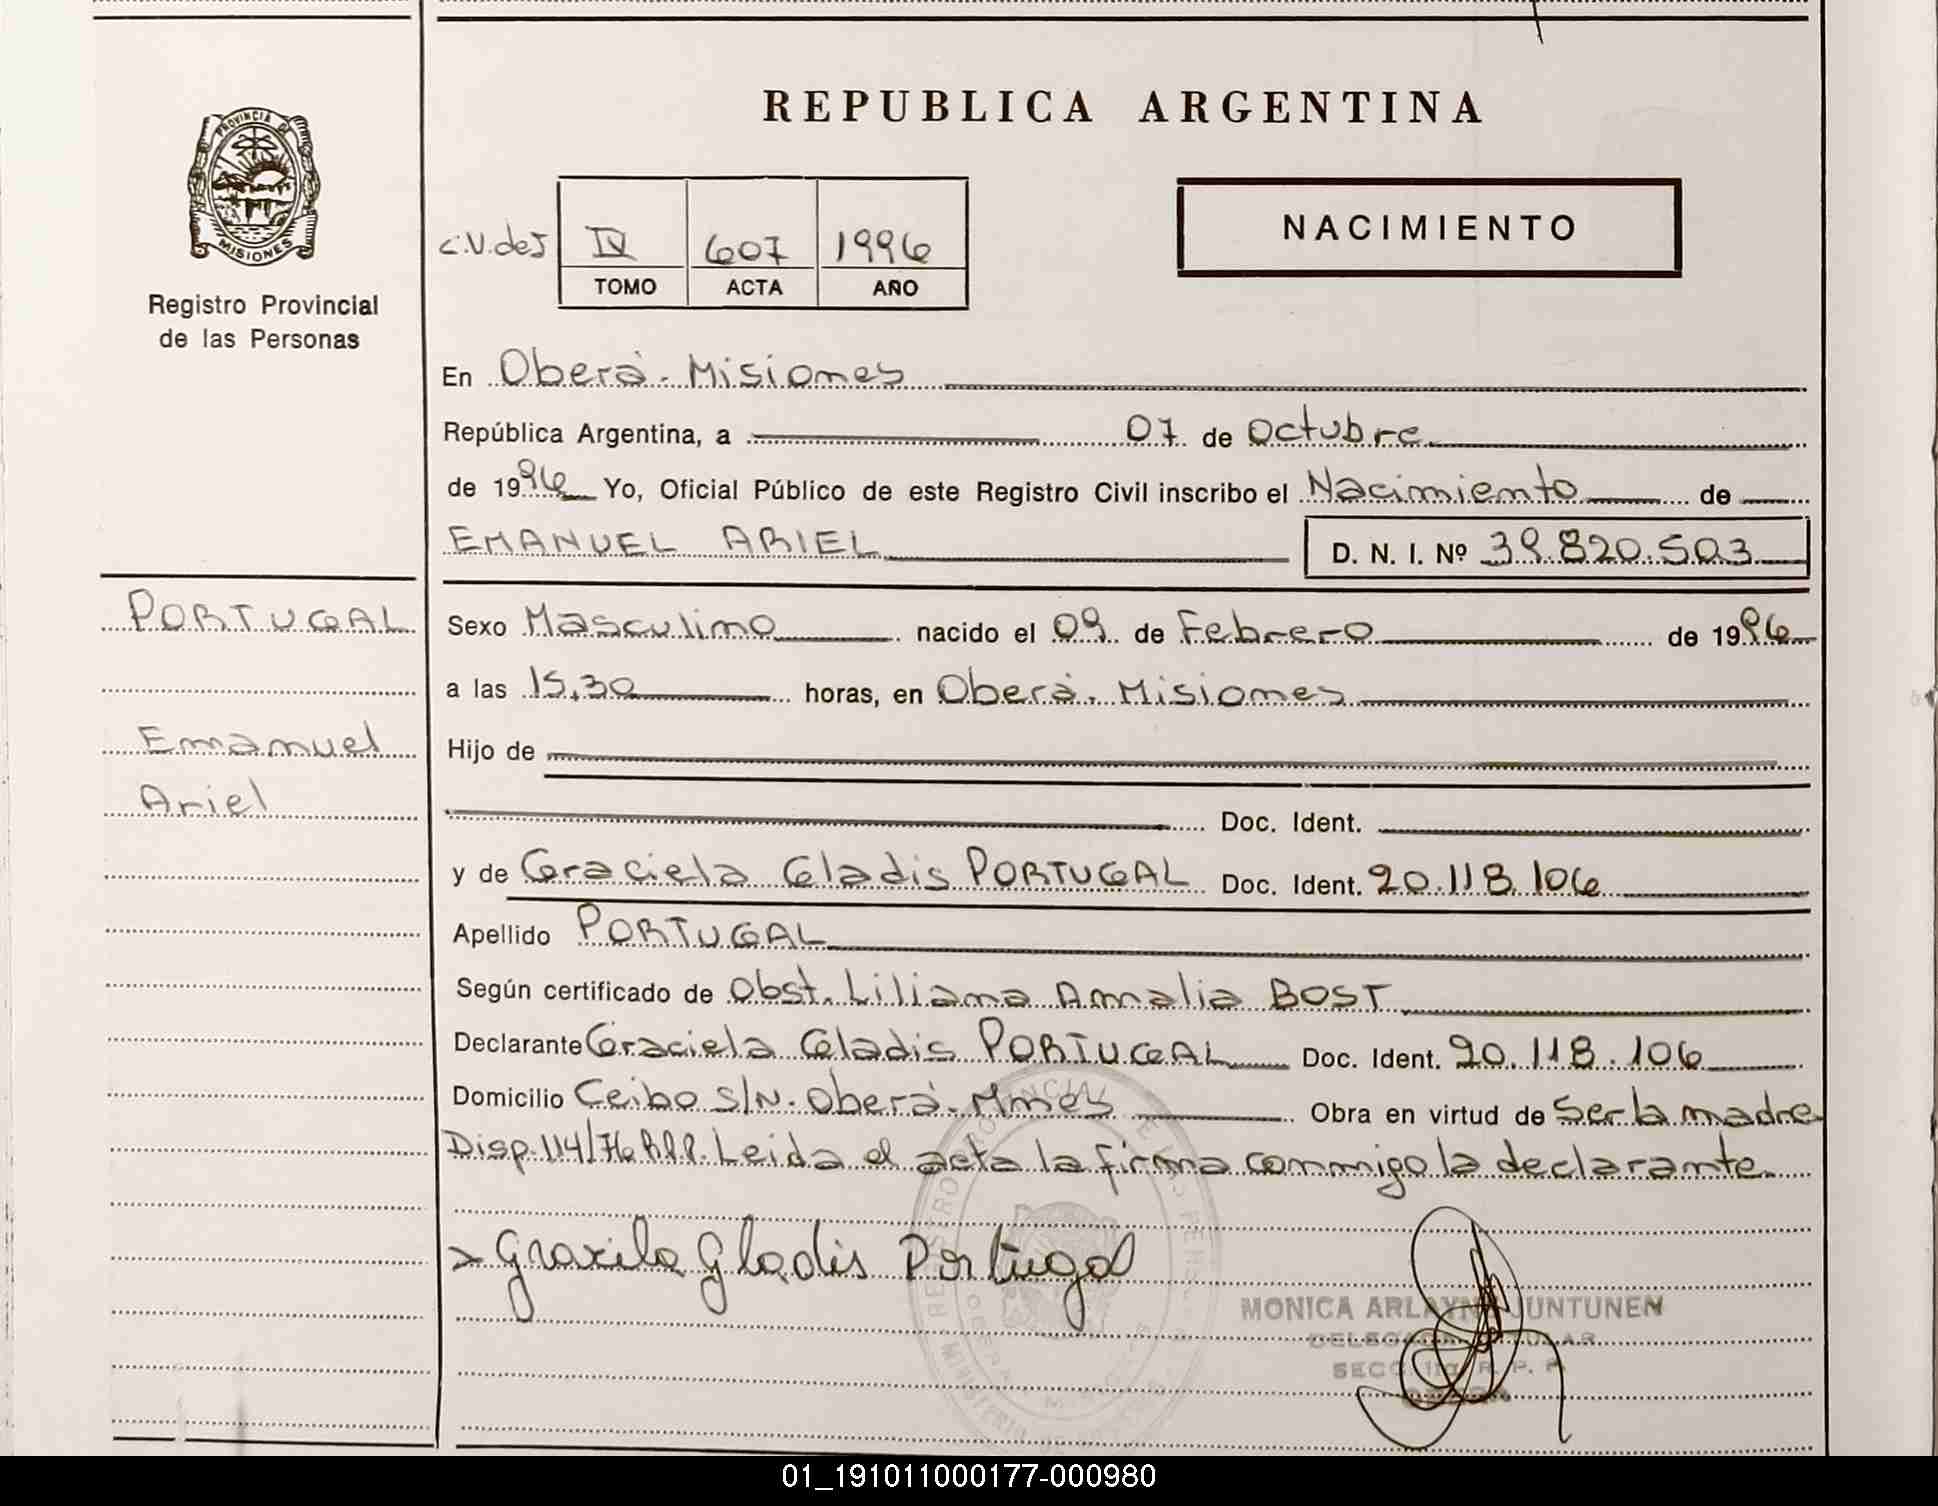 REPUBLICA ARGENTINA
PROVINCIA DE
MISIONES
Registro Provincial
de las Personas
C.V. de J
IV 607 1996
TOMO ACTA AÑO
NACIMIENTO
En Oberá - Misiones
República Argentina, a 07 de Octubre
de 1996 Yo, Oficial Público de este Registro Civil inscribo el Nacimiento de
EMANUEL ARIEL D. N. I. Nº 39.820.503
PORTUGAL
Emanuel
Ariel
Sexo Masculino nacido el 09 de Febrero de 1996
a las 15,30 horas, en Oberá. Misiones
Hijo de
Doc. Ident.
y de Graciela Gladis PORTUGAL Doc. Ident. 20.118.106
Apellido PORTUGAL
Según certificado de Obst. Liliana Amalia BOST
Declarante Graciela Gladis PORTUGAL Doc. Ident. 20.118.106
Domicilio Ceibo S/N. Oberá. Mnes Obra en virtud de Ser la madre
Disp. 114/76 R.P.P. Leida el acta la firma conmigo la declarante.
Graciela Gladis Portugal
MONICA ARLAYNE JUNTUNEN
DELEGADA TITULAR
SECC. 1ra R. P. P.
OBERA
01_191011000177-000980